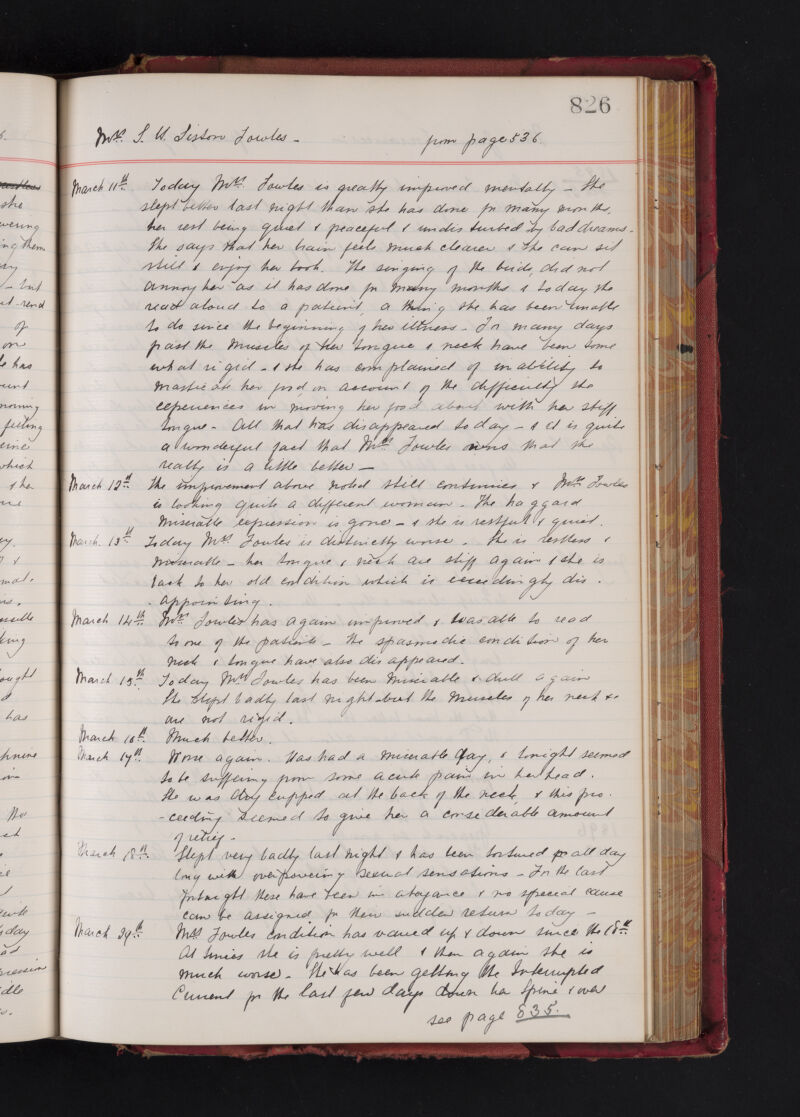 826
Mrs. S. W. Sisson Fowles - from page 536
March 11th. Today Mrs. Fowles is greatly improved mentally - She
slept better last night than she has done for many months,
her rest being quiet & peaceful & undisturbed by bad dreams.
She says that her brain feels much clearer & she can sit
still & enjoy her book. The singing of the birds did not
annoy her as it has done for many months & today she
read aloud to a patient, a thing she has been unable
to do since the beginning of her illness - For many days
past the muscles of her tongue & neck have been some
what rigid - & she has complained of inability to
masticate her food on account of the difficulty she
experiences in moving her food about with her stiff
tongue - All that has disappeared today - & it is quite
a wonderful fact that Mrs. Fowles owns that she
really is a little better -
March 12th. The improvement above noted still continues & Mrs. Fowles
is looking quite a different woman. The haggard
miserable expression is gone - & she is restful & quiet.
March. 13th Today Mrs. Fowles is distinctly worse. She is restless &
miserable - her tongue & neck are stiff again & she is
back to her old condition which is exceedingly dis.
- appointing.
March 14th. Mrs. Fowles has again improved & was able to read
to one of the patients - The spasmodic condition of her
neck & tongue have also disappeared.
March 15th. Today Mrs Fowles has been miserable & dull again
She slept badly last night - but the muscles of her neck &c
are not rigid.
March 16th. Much better.
March 17th. Worse again. Has had a miserable day, & tonight seemed
to be suffering from some acute pain in her head.
She was dry cupped at the back of the neck & this pro.
- ceeding seemed to give her a considerable amount
of relief -
March 18th. Slept very badly last night & has been tortured all day
long with overpowering sexual sensations - For the last
fortnight these have been in abeyance & no special cause
can be assigned for their sudden return today -
March 29th. Mrs. Fowles condition has varied up & down since the 18th.
At times she is pretty well & then again she is
much worse - She has been getting the Interrupted
Current for the last few days down her spine & over
see page 835.